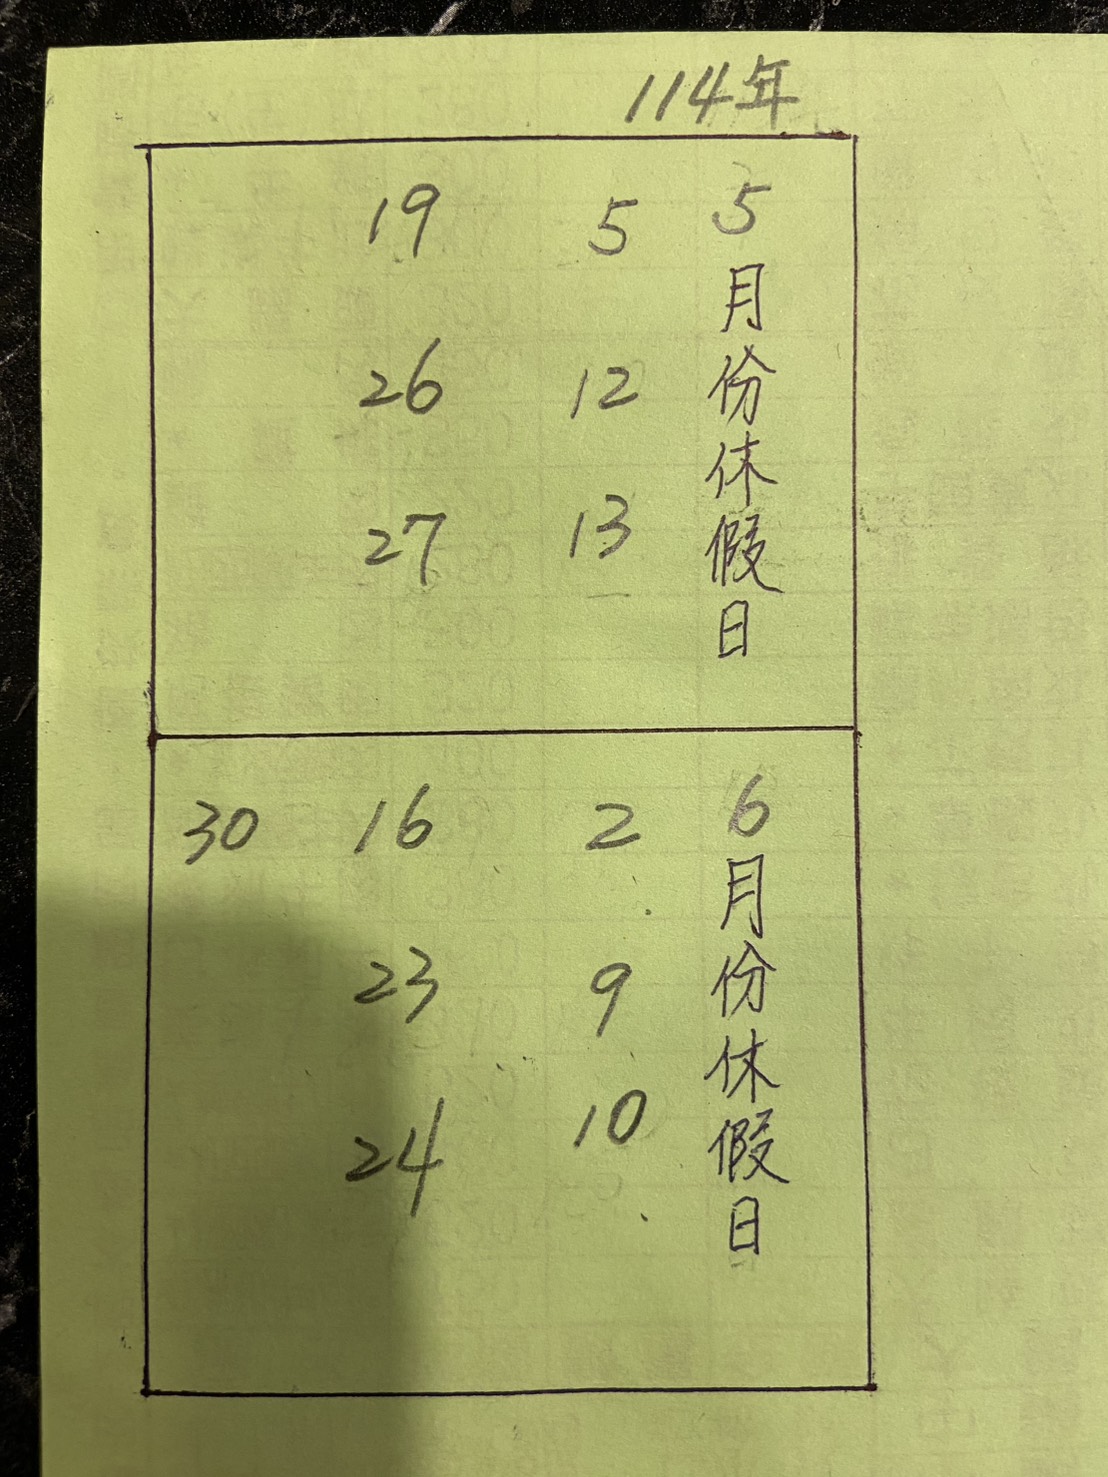 114年
5月份休假日
5
12
13
19
26
27
6月份休假日
2
9
10
16
23
24
30